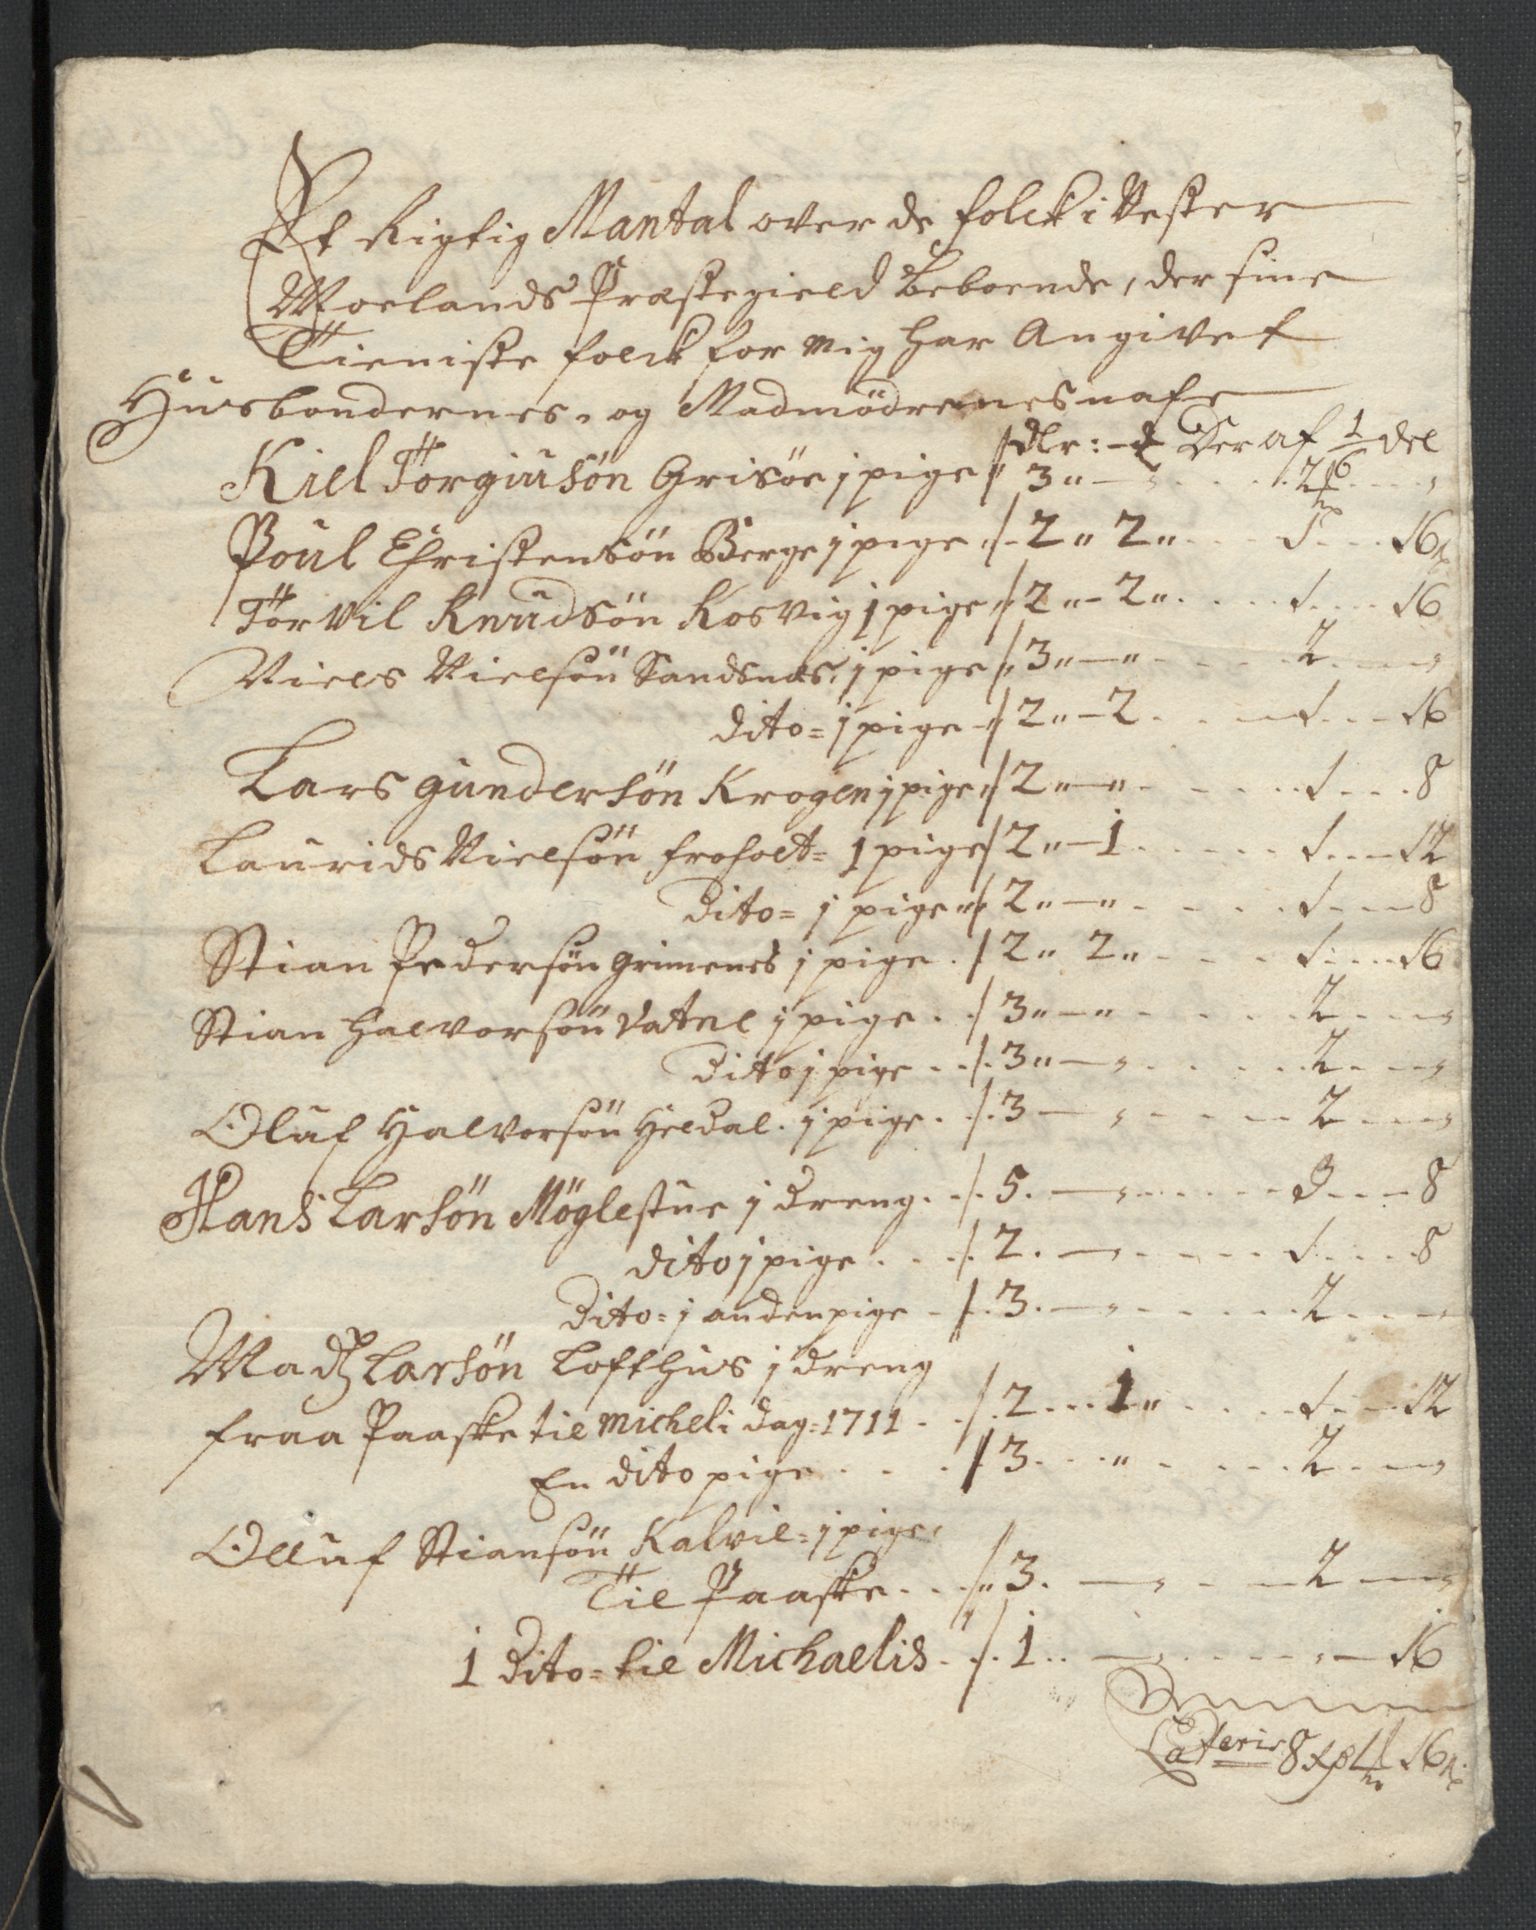 Et Rigtig Mantal over de folck i Vester
Moelands Præstegield Beboende, der sine
Tieniste folck for mig har Angivet
Husbondernes og Madmödrenes nafne
dlr: Der af 1/6 del
Kiel Torgiusön Grisöe j pige 3 " — " 2 — "
Poul Christensön Berge j pige 2 " 2 " 1 16
Torvil Knudsön Kosvig j pige 2 " - 2 " 1 16
Niels Nielsön Sandsnæs. j pige 3 " — " 2 — "
dito = j pige 2 " - 2 1 16
Lars gundersön Krogen j pige 2 " — " 1 8
Laurids Nielsön froholt = 1 pige 2 " - 1 1 12
Dito = j pige 2 " — " 1 8
Stian Pedersön Grimenes j pige 2 " 2 " 1 16
Stian Halvorsön Vatne j pige 3 " — " 2 — "
Dito j pige 3 " — " 2 — "
Oluf Halvorsön Heldal. j pige 3 — " 2 — "
Hans Larsön Möglestue j dreng 5 — " 3 8
dito j pige 2 — " 1 8
Dito = j anden pige 3 — " 2 — "
Madz Larsön Lofthus j dreng
fraa Paaske til Micheli dag = 1711 2 1 " 1 12
En dito pige 3 " 2 — "
Olluf Stiansön Kalvil = j pige
Til Paaske 3 — " 2 — "
1 Dito = til Michaelis 1 — " 16
Lateris 8 1 16